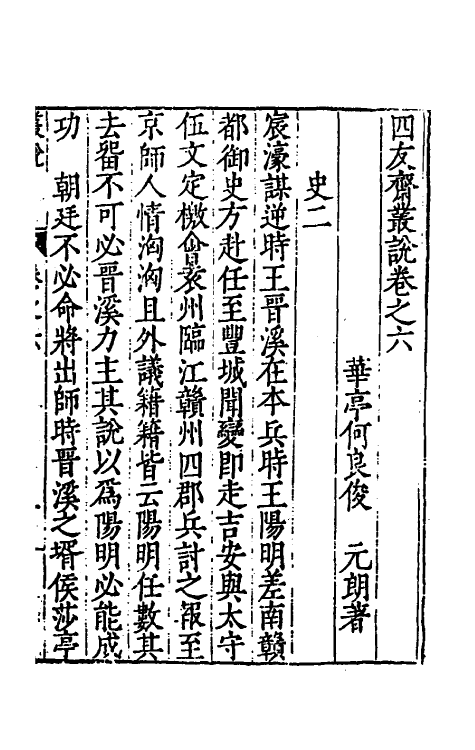 四友齋叢說卷之六
華亭何良俊 元朗著
史二
宸濠謀逆時王晉溪在本兵時王陽明差南贛
都御史方赴任至豐城聞變即走吉安與太守
伍文定檄會袁州臨江贛州四郡兵討之報至
京師人情洶洶且外議籍籍皆云陽明任數其
去畱不可必晉溪力主其說以爲陽明必能成
功 朝廷不必命將出師時晉溪之壻侯莎亭